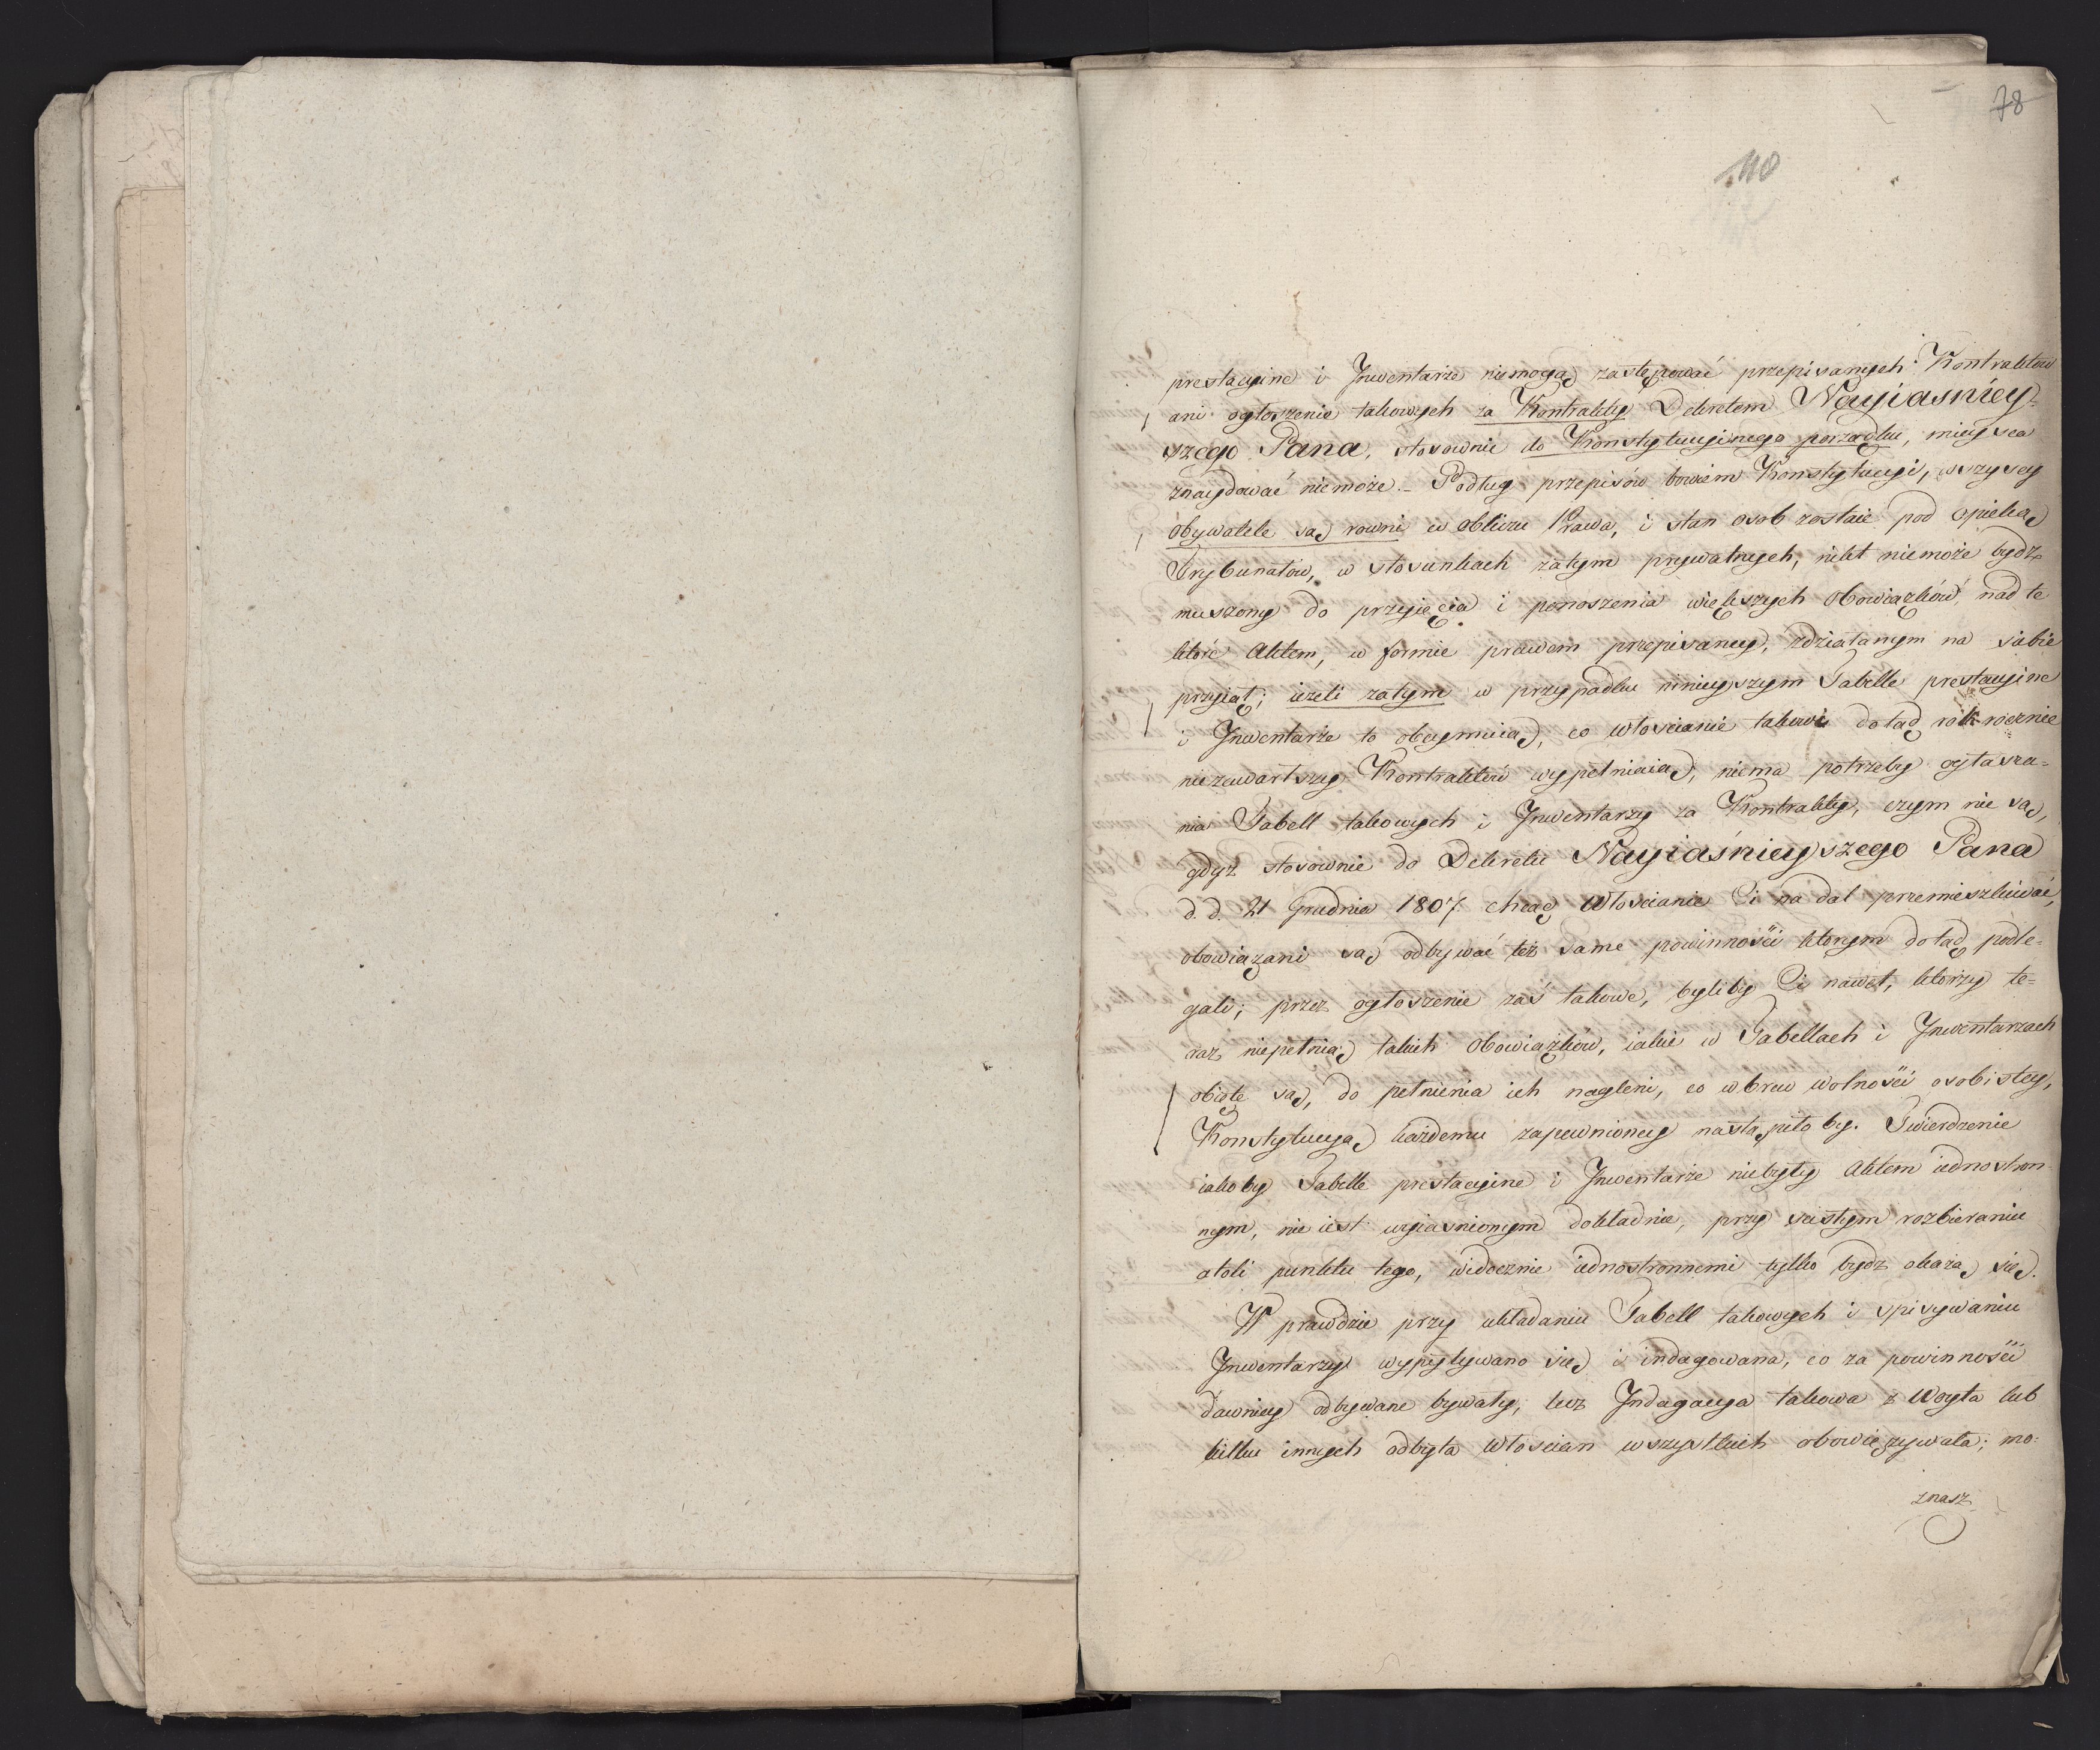 78
110
prestacyine i Jnwentarze niemogą zastępować przepisanych Kontraktów
ani ogłoszenie takowych za Kontrakty Dekretem Nayiasniey-
szego Pana, stosownie do Konstytucyinego porządku, mieysca
znaydować niemoże. – Podług przepisów bowiem Konstytucyi, wszyscy
obywatele są rowni w obliczu Prawa, i stan osob zostaie pod opieką
Trybunałów, w stosunkach zatym prywatnych, nikt niemoże bydz
muszony do przyięcia i ponoszenia większych obowiązków nad te
które Aktem, w formie prawem przepisaney, zdziałanym na siebie
przyiął; ieżeli zatym w przypadku ninieyszym Tabelle prestacyine
i Jnwentarze to obeymuią, co włoscianie takowi dotąd rok rocznie
niezawarłszy Kontraktów wypełniaią, niema potrzeby ogłasza=
nia Tabell takowych i Jnwentarzy za Kontrakty, czym nie są,
gdyż stosownie do Dekretu Nayiaśnieyszego Pana
d. d. 21 Grudnia 1807 chcąc Włoscianie Ci na dal przemieszkiwać,
obowiązani są odbywać też same powinności ktorym dotąd podle=
gali; przez ogłoszenie zaś takowe, byliby Ci nawet, którzy te=
raz niepełnią takich obowiązków, iakie w Tabellach i Jnwentarzach
obięte są, do pełnienia ich nagleni, co wbrew wolności osobistey,
Konstytucyą każdemu zapewnioney nastąpiło by. Twierdzenie
iakoby Tabelle prestacyine i Jnwentarze niebyły Aktem iednostron-
nym, nie iest wyiasnionym dokładnie, przy scisłym rozbieraniu
atoli punktu tego, widocznie iednostronnemi tylko bydz okażą się.
W prawdzie przy układaniu Tabell takowych i spisywaniu
Jnwentarzy wypytywano się i indagowana, co za powinności
dawniey odbywane bywały, lecz Jndagacya takowa z Woyta lub
kilku innych odbyta włoscian wszystkich obowięzywała; mo=
znasz